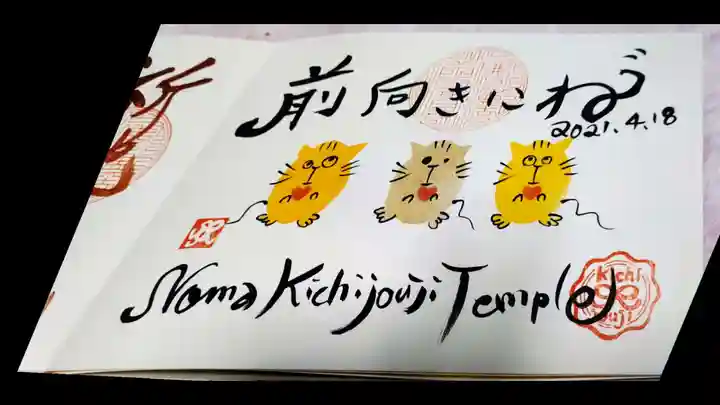 前向きにねぅ
2021.4.18
Noma Kichijouji Temple
kichi
jouji